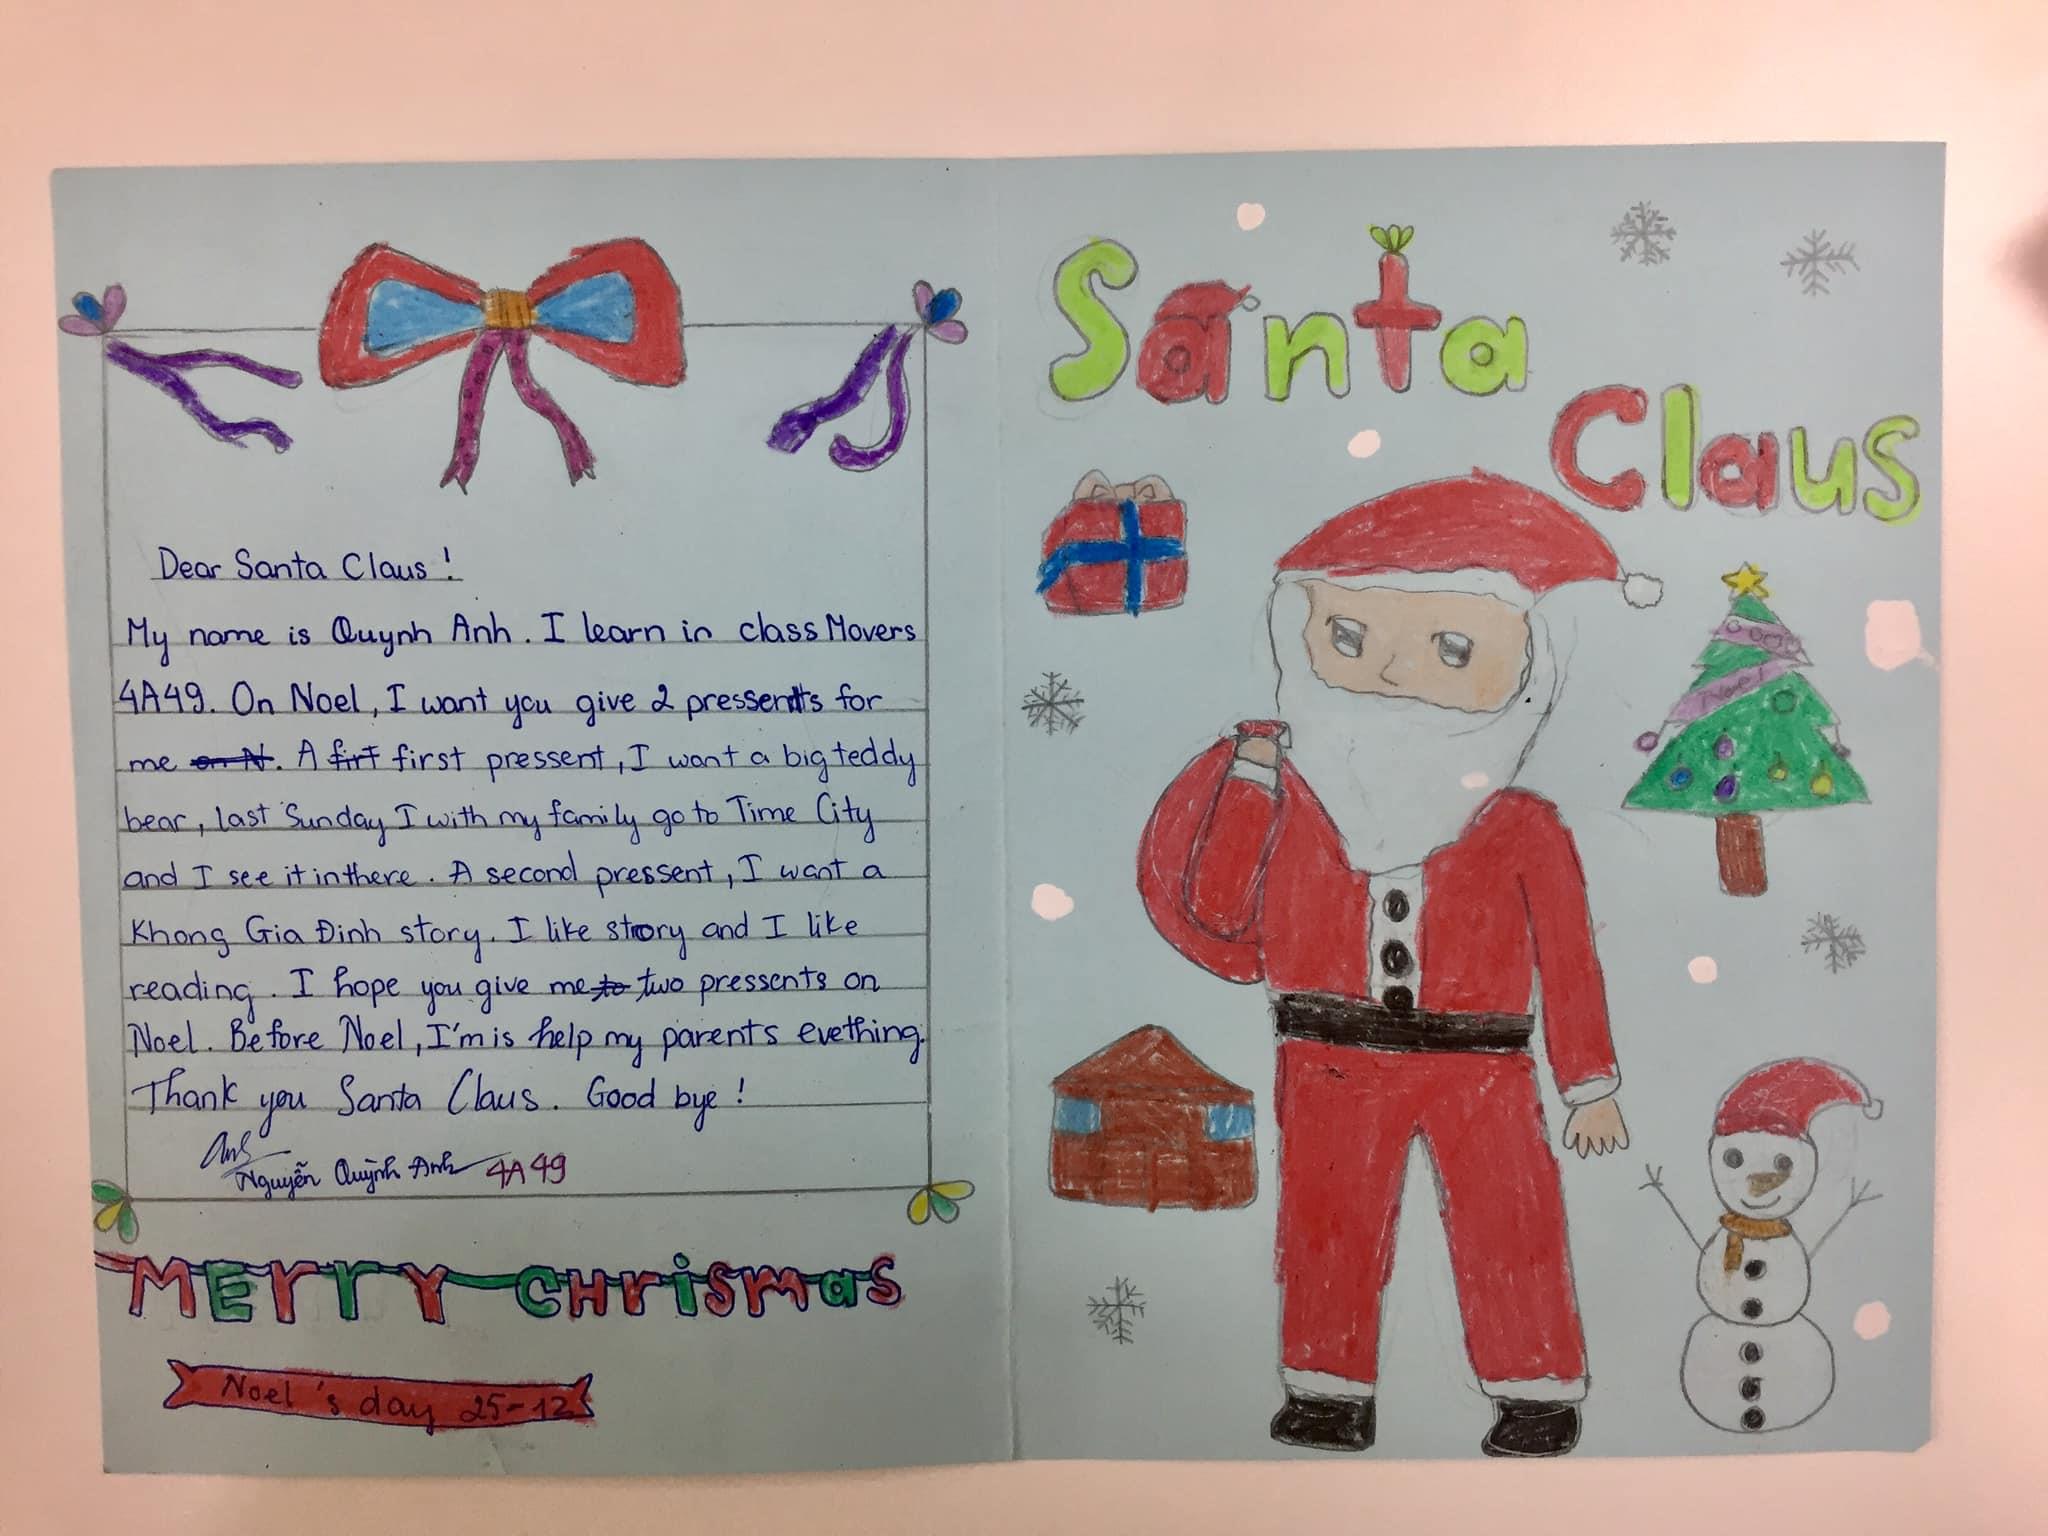 Dear Santa Claus!
My name is Quynh Anh. I learn in class Movers
4A49. On Noel, I want you give 2 pressents for
me on N. A firt first pressent, I want a big teddy
bear, last Sunday I with my family go to Time City
and I see it in there. A second pressent, I want a
Khong Gia Đinh story. I like story and I like
reading. I hope you give me to two pressents on
Noel. Before Noel, I'm is help my parents evething.
Thank you Santa Claus. Good bye!
Anh
Nguyễn Quỳnh Anh 4A49
MERRY CHRISMAS
Noel's day 25-12
Santa
Claus
Noel